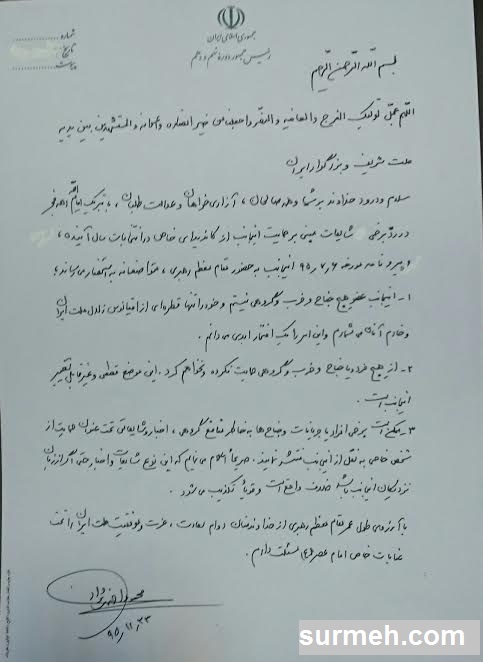 جمهوری اسلامی ایران
رئیس جمهور دوره نهم و دهم
شماره
تاریخ
پیوست
بسم الله الرحمن الرحیم
اللهم عجل لولیک الفرج والعافیة والنصر واجعلنا من خیر انصاره واعوانه والمستشهدین بین یدیه
ملت شریف و بزرگوار ایران
سلام و درود خداوند بر شما و همه صالحان، آزادی‌خواهان و عدالت طلبان، با تبریک ایام الله دهه فجر
در رد برخی شایعات مبنی بر حمایت اینجانب از کاندیدای خاص در انتخابات سال آینده،
و پیرو نامه مورخه ۹۵/۷/۶ اینجانب به حضور مقام معظم رهبری، متواضعانه به استحضار می‌رساند؛
۱- اینجانب عضو هیچ جناح و حزب و گروهی نیستم و خود را تنها قطره‌ای از اقیانوس زلال ملت ایران
و خادم آنان می‌شمارم و این امر را یک افتخار ابدی می‌دانم.
۲- از هیچ فرد یا جناح و حزب و گروهی حمایت نکرده و نخواهم کرد. این موضع قطعی و غیرقابل تغییر
اینجانب است.
۳- ممکن است برخی افراد یا جریانات و جناح‌ها به خاطر منافع گروهی، اخبار و شایعاتی تحت عنوان حمایت از
شخص خاصی به نقل از اینجانب منتشر نمایند. صریحاً اعلام می‌نمایم که این نوع شایعات و اخبار حتی اگر از زبان
نزدیکان اینجانب باشد خلاف واقع است و قویاً تکذیب می‌شود.
با آرزوی طول عمر مقام معظم رهبری از خداوند منان دوام سعادت، عزت و موفقیت ملت ایران را تحت
عنایات خاص امام عصر (ع) مسئلت دارم.
محمود احمدی نژاد
۹۵/۱۱/۲۳
surmeh.com